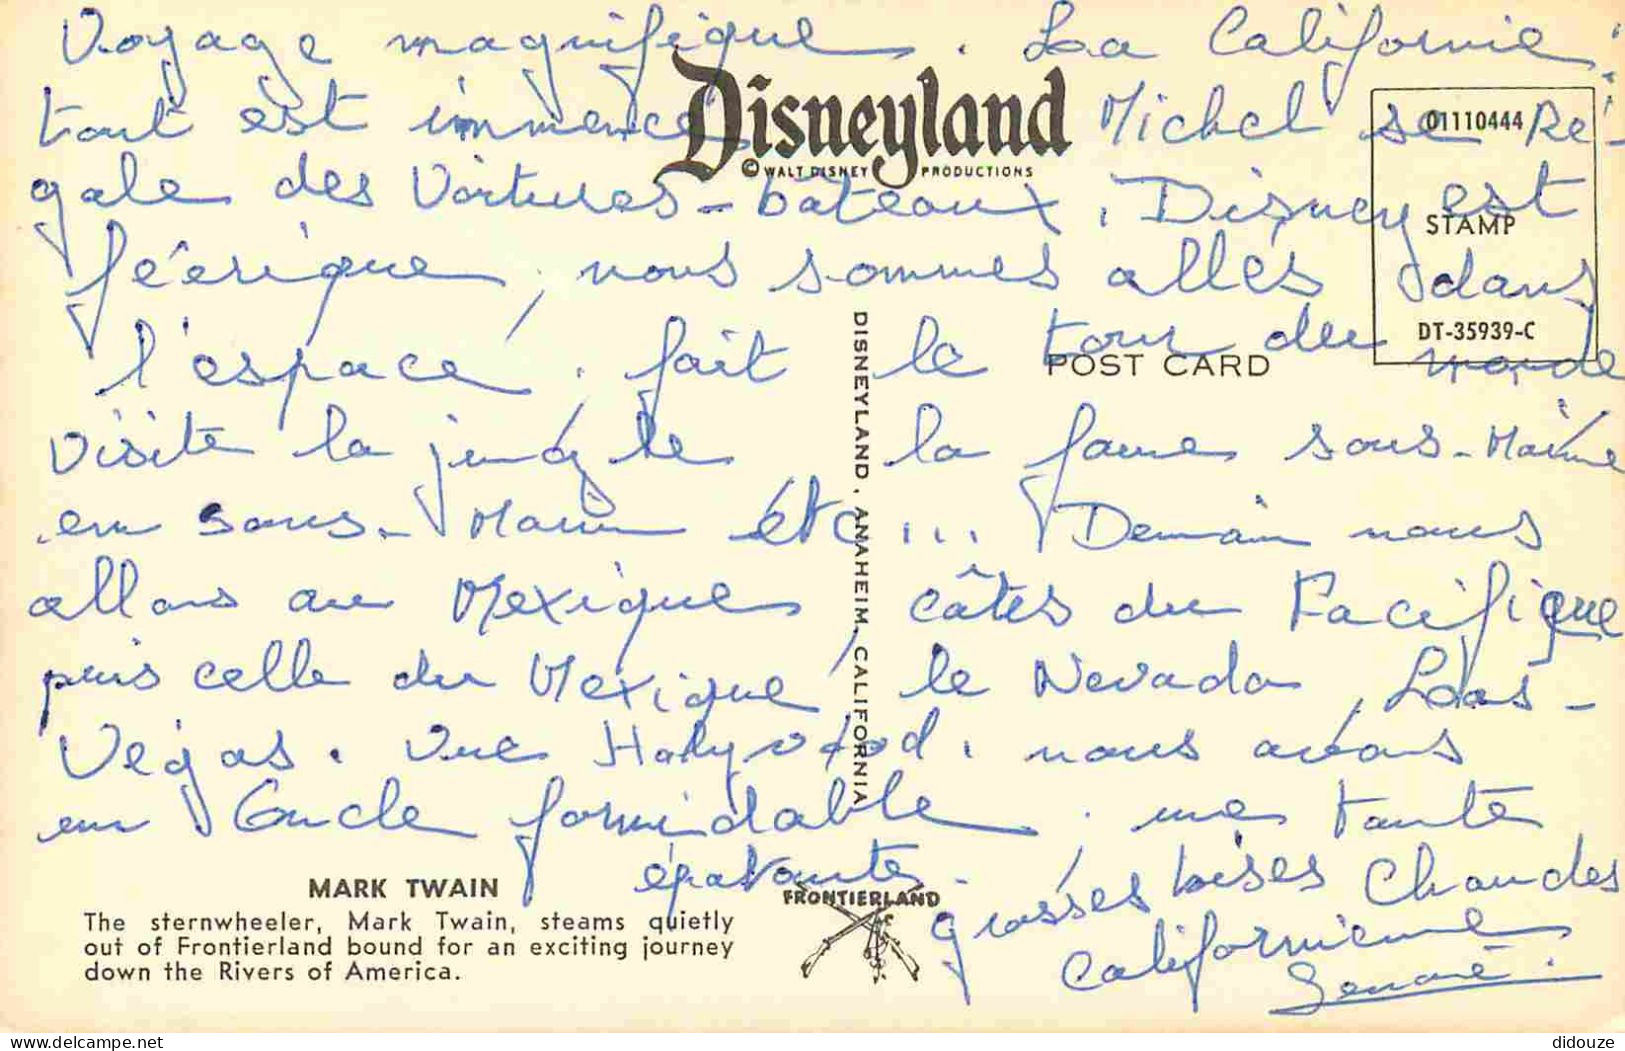 Voyage magnifique. La Californie
tout est immence Michel se Ré-
Disneyland
© WALT DISNEY PRODUCTIONS
01110444
STAMP
DT-35939-C
POST CARD
gale des Voitures-bâteaux. Disney est
féerique, nous sommes allés dans
l'espace. fait le tour du monde
visité la jungle la faune sous-Marine
en sous-Marin etc... Demain nous
allons au Mexique, côtes du Pacifique
puis celle du Mexique le Nevada, Las-
Végas. vue Holywood. nous avons
un Oncle formidable. une tante
épatante.
grosses bises Chaudes
Californienne
DISNEYLAND, ANAHEIM, CALIFORNIA
MARK TWAIN
The sternwheeler, Mark Twain, steams quietly
out of Frontierland bound for an exciting journey
down the Rivers of America.
FRONTIERLAND
delcampe.net
didouze